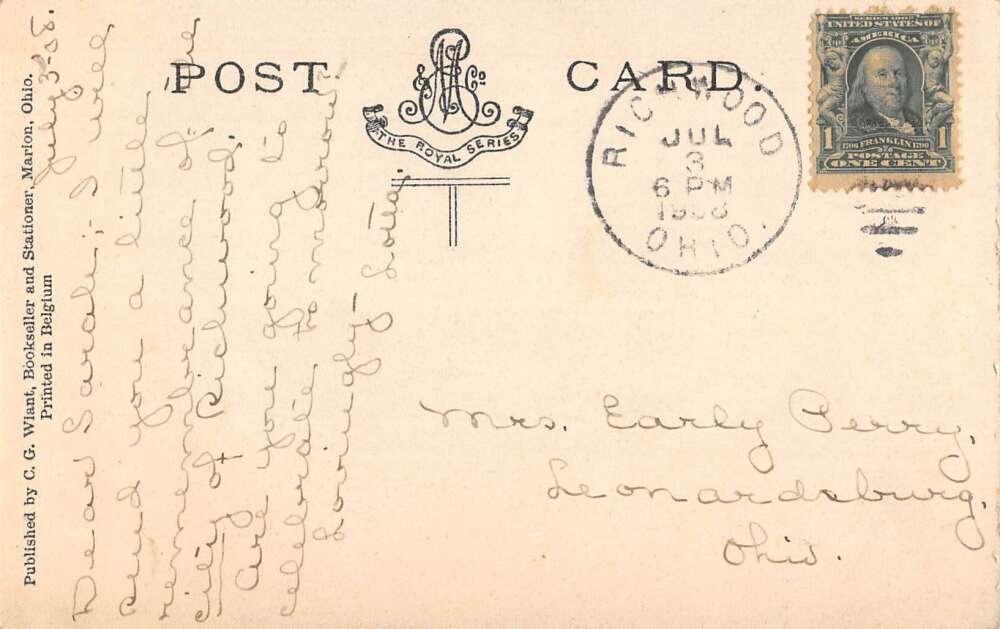 POST CARD.
A M S & Co
THE ROYAL SERIES
RICHWOOD
JUL
3
6 PM
1908
OHIO.
SERIES 1902
UNITED STATES OF
AMERICA
1 1
1706 FRANKLIN 1790
POSTAGE
ONE CENT
Published by C. G. Wiant, Bookseller and Stationer, Marion, Ohio.
Printed in Belgium
July 3-08.
Dear Sarah:- I will
send you a little
remembrance of
city of Richwood.
Are you going to
celebrate to-morrow?
Lovingly- Lotta.
Mrs. Early Perry,
Leonardsburg,
Ohio.